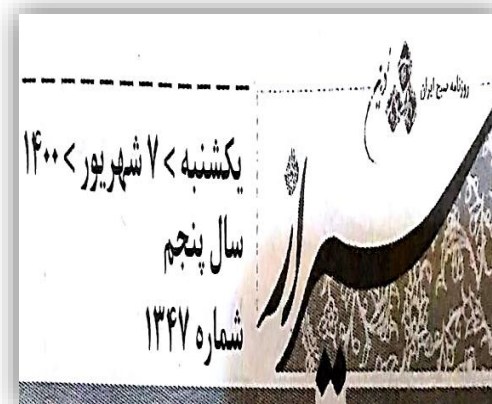 روزنامه صبح ایران
شیراز
یکشنبه > ۷ شهریور > ۱۴۰۰
سال پنجم
شماره ۱۳۴۷